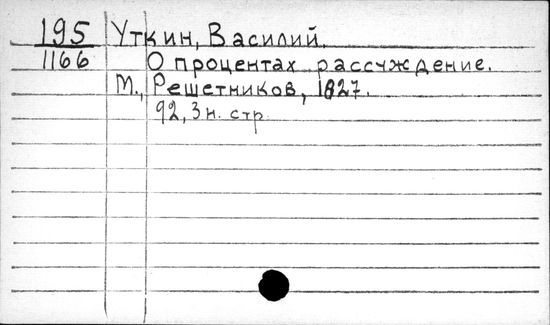 195 Уткин, Василий.
1166 О процентах рассуждение.
М., Решетников, 1827.
92, 3 н. стр.